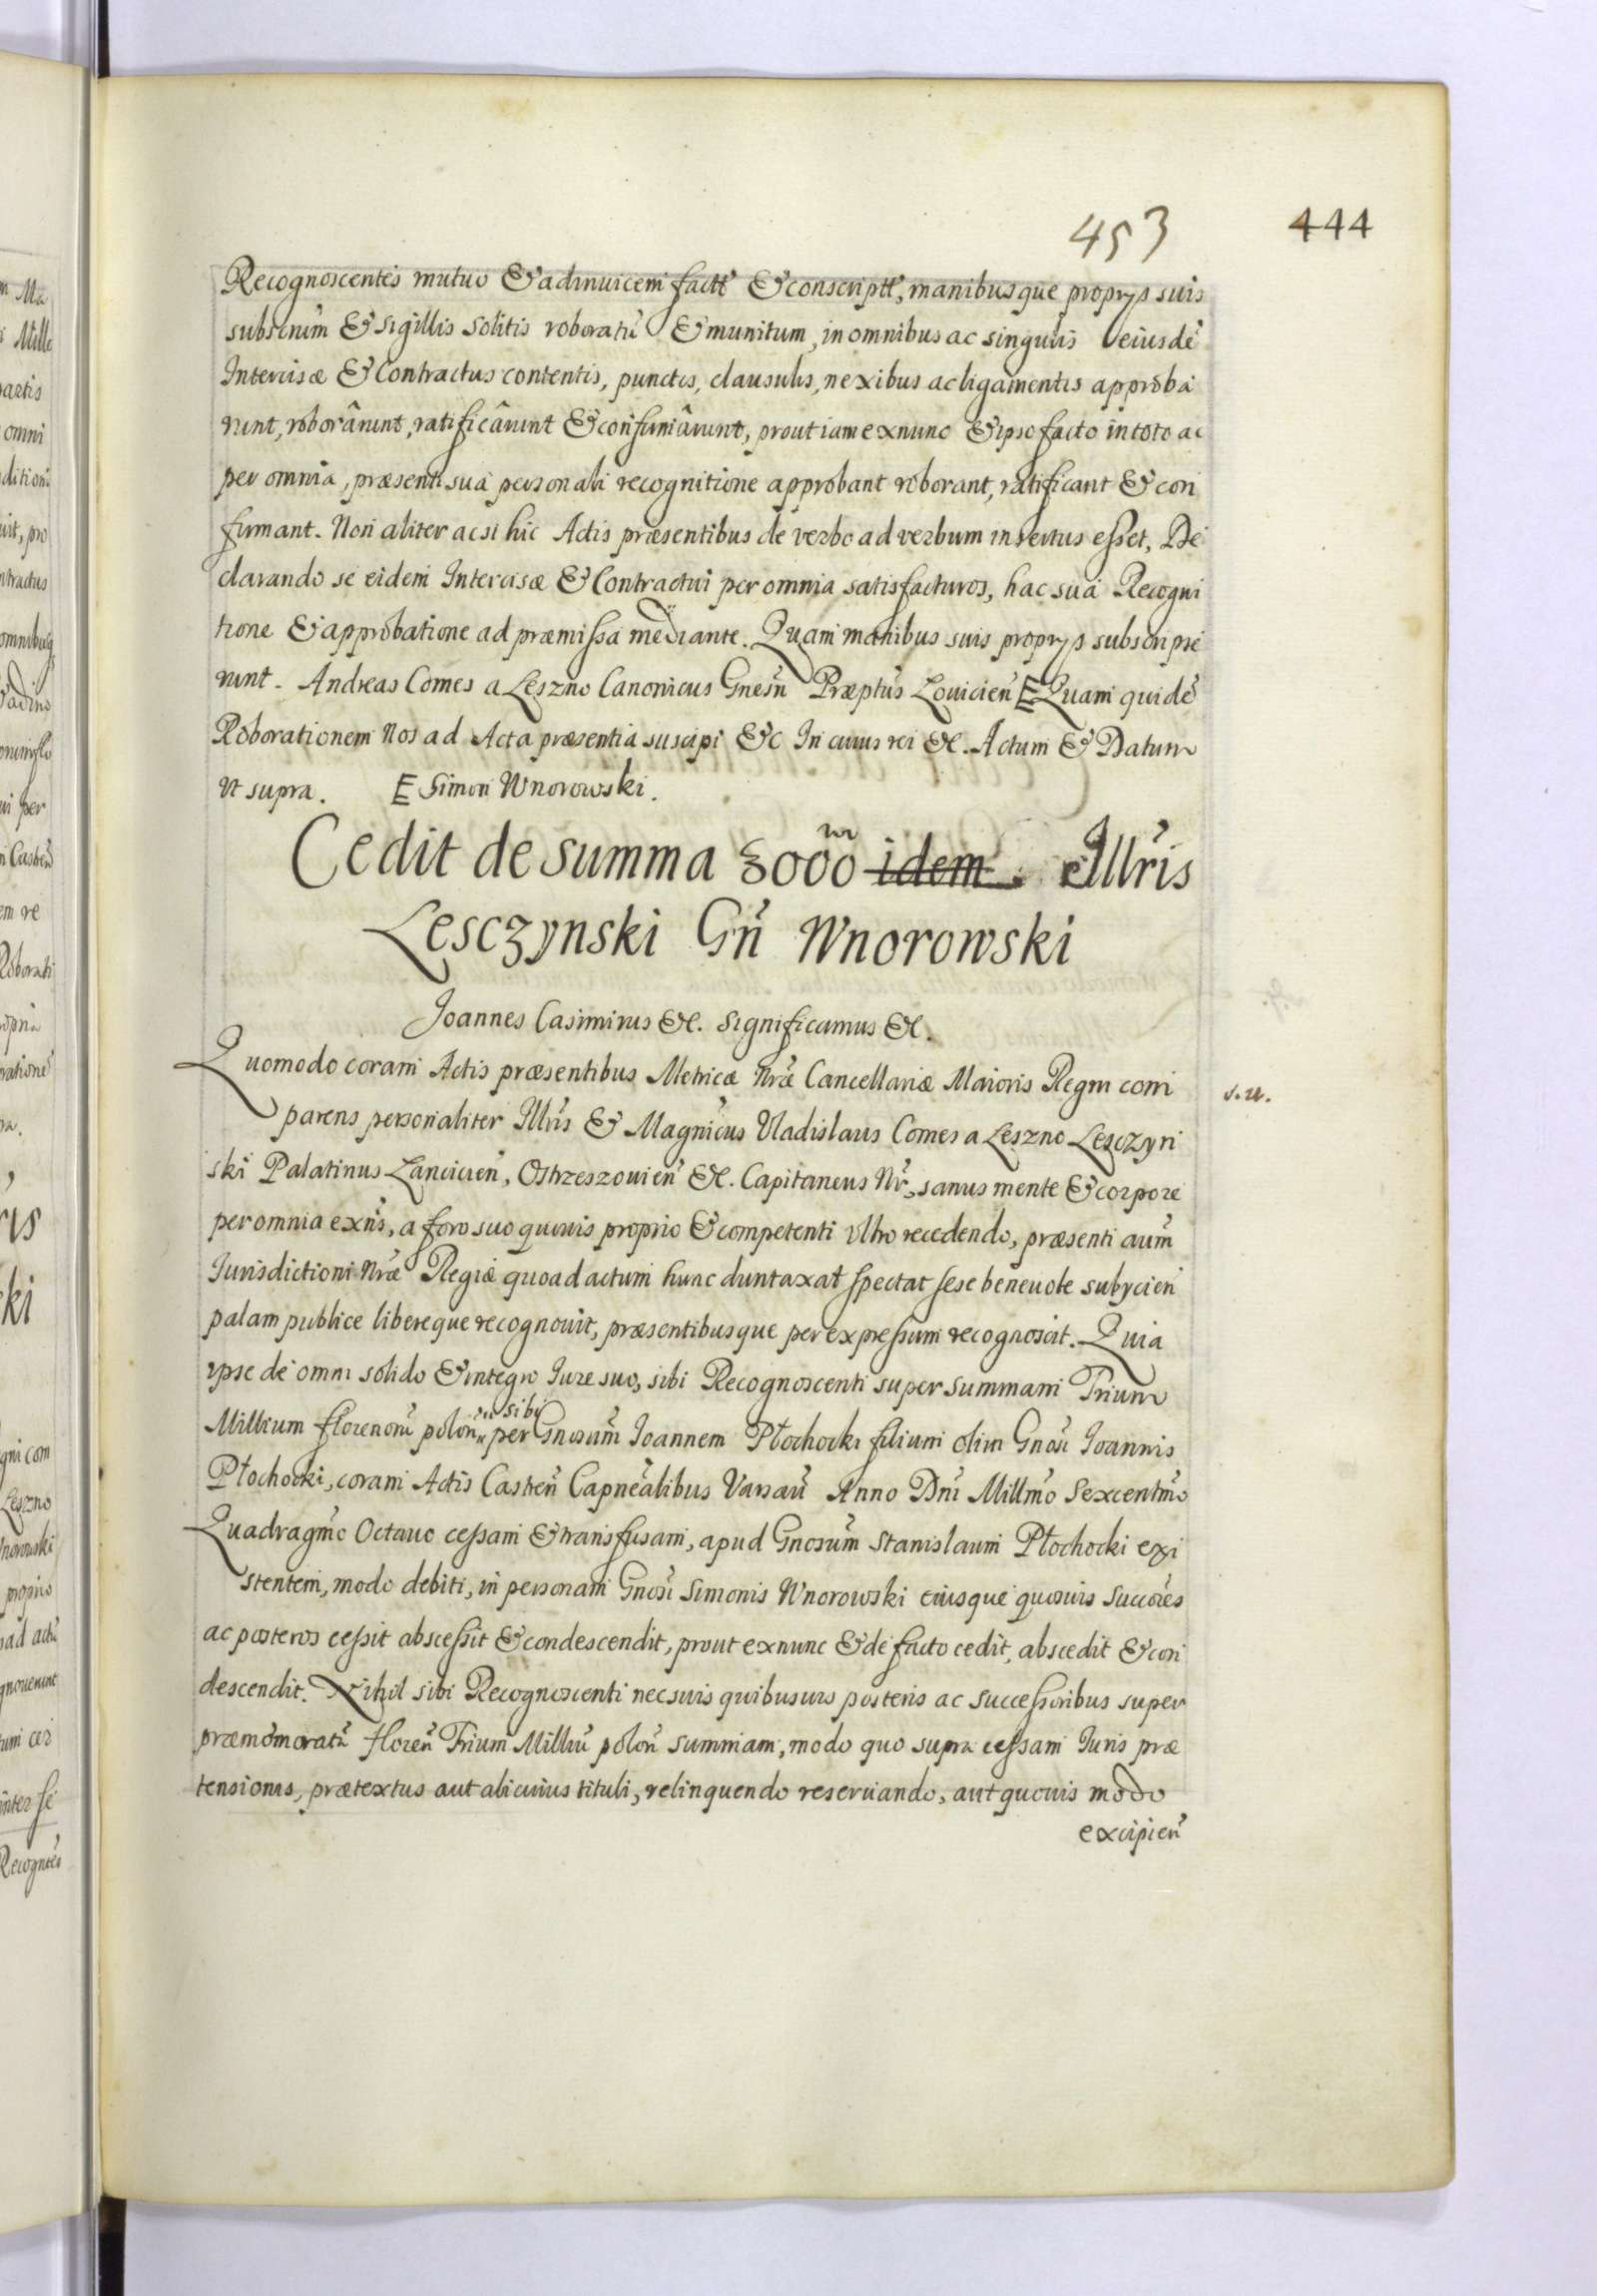 453 444
Recognoscentes mutuo & adinuicem factt & conscriptt, manibusque proprys suis
subscnum & sigillis solitis roboratu & munitum, in omnibus ac singulis eiusde
Intercisæ & Contractus contentis, punctis, clausulis, nexibus ac ligamentis approba
runt, roborârunt, ratificârunt & confirmârunt, prout iam exnunc & ipso facto in toto ac
per omnia, præsenti sua personali recognitione approbant roborant, ratificant & con
firmant. Non aliter acsi hic Actis præsentibus de verbo ad verbum insertus esset, De
clarando se eidem Intercisæ & Contractui per omnia satisfacturos, hac sua Recogni
tione & approbatione ad præmissa mediante. Quam manibus suis proprys subscripse
runt. Andreas Comes a Leszno Canonicus Gnesn Præptus Louicien E Quam quide
Roborationem Nos ad Acta præsentia suscipi &c In cuius rei &c. Actum & Datum
vt supra. E Simon Wnorowski.
Cedit de summa 3000 m idem. Illris
Lesczynski Gn Wnorowski
Joannes Casimirus &c. Significamus &c.
Quomodo coram Actis præsentibus Metricæ Nræ Cancellariæ Maioris Regni com
s. u.
parens personaliter Illris & Magnicus Vladislaus Comes a Leszno Lesczyn
ski Palatinus Lancicien, Ostrzeszouien &c. Capitaneus Nr, sanus mente & corpore
per omnia exns, a foro suo quouis proprio & competenti vltro recedendo, præsenti aum
Jurisdictioni Nræ Regiæ quoad actum hunc duntaxat spectat sese beneuole subycien
palam publice libereque recognouit, præsentibusque per expressum recognoscit. Quia
ipse de omni solido & integro Iure suo, sibi Recognoscenti super summam Trium
Millium florenoru polon per sibi Gnosum Joannem Płochocki filium olim Gnosi Joannis
Płochocki, coram Actis Castren Capnealibus Varsau Anno Dni Millmo Sexcentmo
Quadragmo Octauo cessam & transfusam, apud Gnosum Stanislaum Płochocki exi
stentem, modo debiti, in personam Gnosi Simonis Wnorowski eiusque quosuis succores
ac posteros cessit abscessit & condescendit, prout exnunc & de facto cedit, abscedit & con
descendit. Nihil sibi Recognoscenti nec suis quibusuis posteris ac successoribus super
præmemorata floren Trium Milliu polon summam, modo quo supra cessam Iuris præ
tensionis, prætextus aut alicuius tituli, relinquendo reseruando, aut quouis modo
excipien